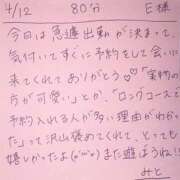 4/12 80分 E様
今日は急遽出勤が決まって、
気付いてすぐに予約をして会いに
来てくれてありがとう♡♡「実物の
方が可愛い」とか、「ロングコースで
予約入れる人が多い理由がわかっ
た」って沢山褒めてくれて、とっても
嬉しかったよ(*˘︶˘*)また遊ぼうね!!
みと